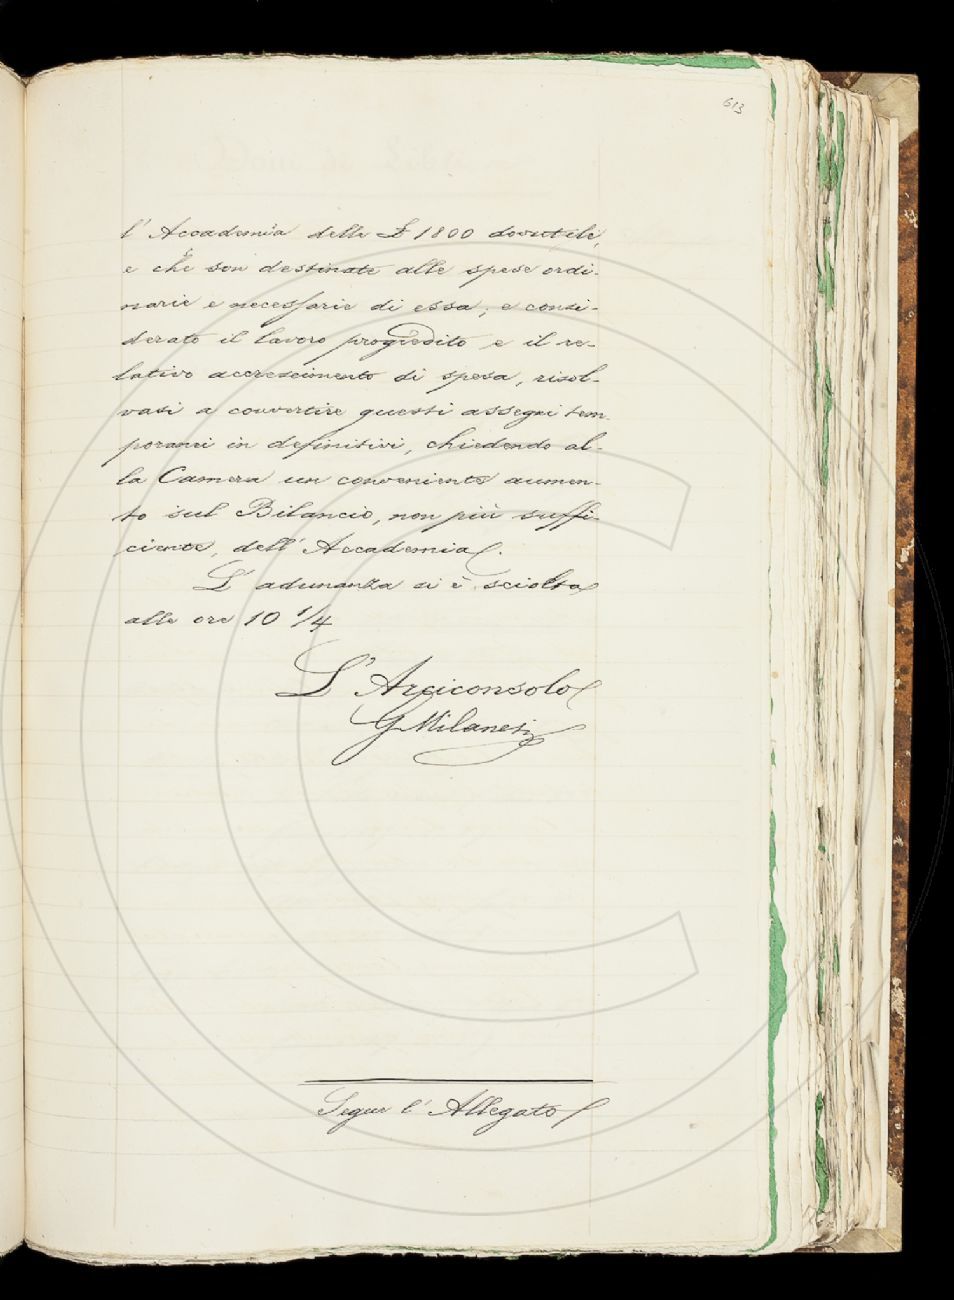 613
l'Accademia delle £ 1800 dovutele,
e che son destinate alle spese ordi-
narie e necessarie di essa, e consi-
derato il lavoro progredito e il re-
lativo accrescimento di spesa, risol-
vasi a convertire questi assegni tem
poranei in definitivi, chiedendo al-
la Camera un conveniente aumen-
to sul Bilancio, non più suffi-
ciente, dell'Accademia.
L'adunanza si è sciolta
alle ore 10 1/4
L'Arciconsolo
G Milanesi
Segue l'Allegato